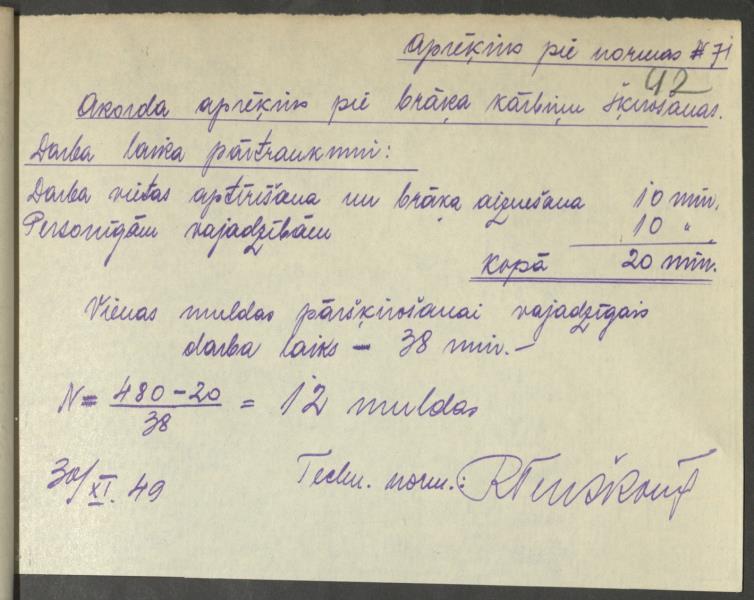 Aprēķins pie normas # 71
42
Akorda aprēķins pie brāķa kārbiņu šķirošanas.
Darba laika pārtraukumi:
Darba vietas aptīrīšana un brāķa aiznešana 10 min.
Personīgām vajadzībām 10 "
Kopā 20 min.
Vienas muldas pāršķirošanai vajadzīgais
darba laiks - 38 min. -
N = 480 - 20 / 38 = 12 muldas
30/XI. 49 Techn. norm.: